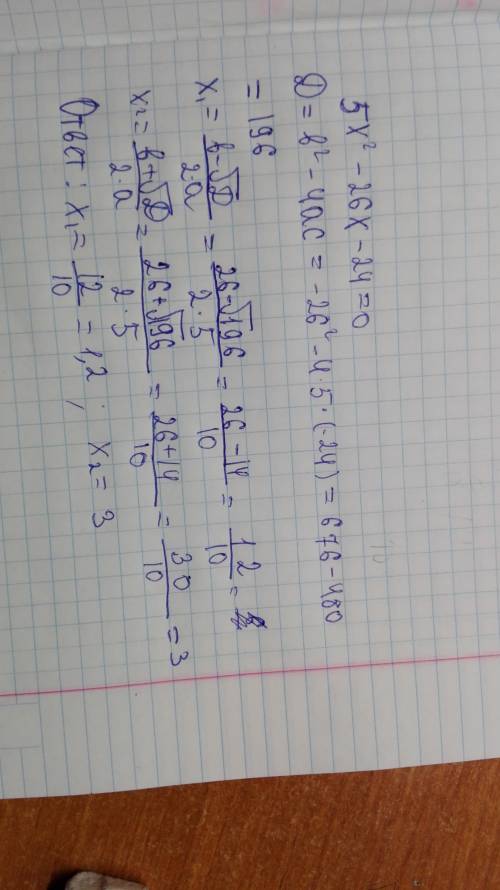 5x² - 26x - 24 = 0
D = b² - 4ac = -26² - 4·5·(-24) = 676 - 480
= 196
x₁ = b-√D / 2·a = 26-√196 / 2·5 = 26-14 / 10 = 12/10 =
x₂ = b+√D / 2·a = 26+√196 / 2·5 = 26+14 / 10 = 30/10 = 3
Ответ: x₁ = 12/10 = 1,2; x₂ = 3